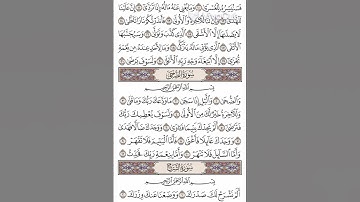 فَسَنُيَسِّرُهُۥ لِلْعُسْرَىٰ ١٠ وَمَا يُغْنِى عَنْهُ مَالُهُۥٓ إِذَا تَرَدَّىٰٓ ١١ إِنَّ عَلَيْنَا
لَلْهُدَىٰ ١٢ وَإِنَّ لَنَا لَلْءَاخِرَةَ وَٱلْأُولَىٰ ١٣ فَأَنذَرْتُكُمْ نَارًا تَلَظَّىٰ ١٤
لَا يَصْلَىٰهَآ إِلَّا ٱلْأَشْقَى ١٥ ٱلَّذِى كَذَّبَ وَتَوَلَّىٰ ١٦ وَسَيُجَنَّبُهَا
ٱلْأَتْقَى ١٧ ٱلَّذِى يُؤْتِى مَالَهُۥ يَتَزَكَّىٰ ١٨ وَمَا لِأَحَدٍ عِندَهُۥ مِن نِّعْمَةٍ
تُجْزَىٰٓ ١٩ إِلَّا ٱبْتِغَآءَ وَجْهِ رَبِّهِ ٱلْأَعْلَىٰ ٢٠ وَلَسَوْفَ يَرْضَىٰ ٢١
سُورَةُ الضُّحَىٰ
بِسْمِ ٱللَّهِ ٱلرَّحْمَـٰنِ ٱلرَّحِيمِ
وَٱلضُّحَىٰ ١ وَٱلَّيْلِ إِذَا سَجَىٰ ٢ مَا وَدَّعَكَ رَبُّكَ وَمَا قَلَىٰ ٣
وَلَلْءَاخِرَةُ خَيْرٌ لَّكَ مِنَ ٱلْأُولَىٰ ٤ وَلَسَوْفَ يُعْطِيكَ رَبُّكَ
فَتَرْضَىٰٓ ٥ أَلَمْ يَجِدْكَ يَتِيمًا فَـَٔاوَىٰ ٦ وَوَجَدَكَ ضَآلًّا فَهَدَىٰ
٧ وَوَجَدَكَ عَآئِلًا فَأَغْنَىٰ ٨ فَأَمَّا ٱلْيَتِيمَ فَلَا تَقْهَرْ ٩
وَأَمَّا ٱلسَّآئِلَ فَلَا تَنْهَرْ ١٠ وَأَمَّا بِنِعْمَةِ رَبِّكَ فَحَدِّثْ ١١
سُورَةُ الشَّرْحِ
بِسْمِ ٱللَّهِ ٱلرَّحْمَـٰنِ ٱلرَّحِيمِ
أَلَمْ نَشْرَحْ لَكَ صَدْرَكَ ١ وَوَضَعْنَا عَنكَ وِزْرَكَ ٢